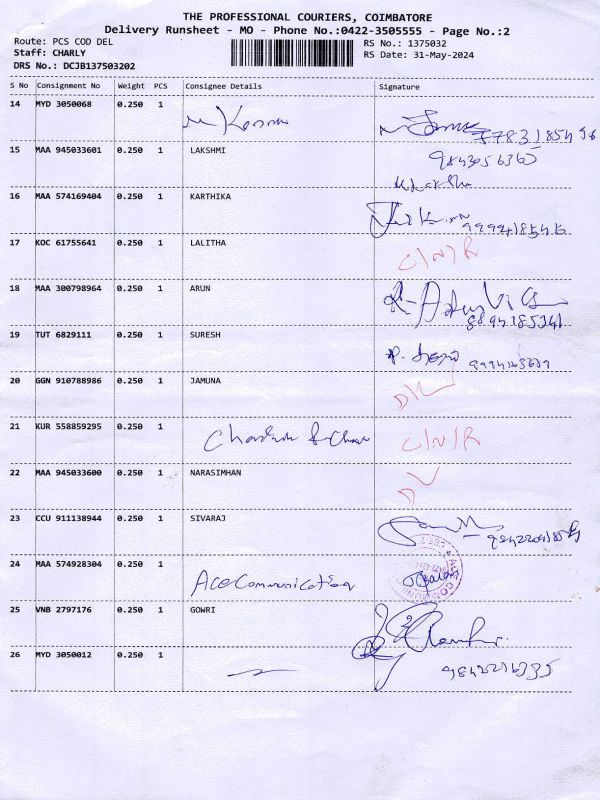 THE PROFESSIONAL COURIERS, COIMBATORE
Delivery Runsheet - MO - Phone No.:0422-3505555 - Page No.:2
Route: PCS COD DEL
RS No.: 1375032
Staff: CHARLY
RS Date: 31-May-2024
DRS No.: DCJB137503202
S No Consignment No Weight PCS Consignee Details Signature
14 MYD 3050068 0.250 1
15 MAA 945033601 0.250 1 LAKSHMI
16 MAA 574169404 0.250 1 KARTHIKA
17 KOC 61755641 0.250 1 LALITHA C/N/R
18 MAA 300798964 0.250 1 ARUN
19 TUT 6829111 0.250 1 SURESH
20 GGN 910788986 0.250 1 JAMUNA D/L
21 KUR 558859295 0.250 1 C/N/R
22 MAA 945033600 0.250 1 NARASIMHAN
23 CCU 911138944 0.250 1 SIVARAJ
24 MAA 574928304 0.250 1 Ace Communication
25 VNB 2797176 0.250 1 GOWRI
26 MYD 3050012 0.250 1